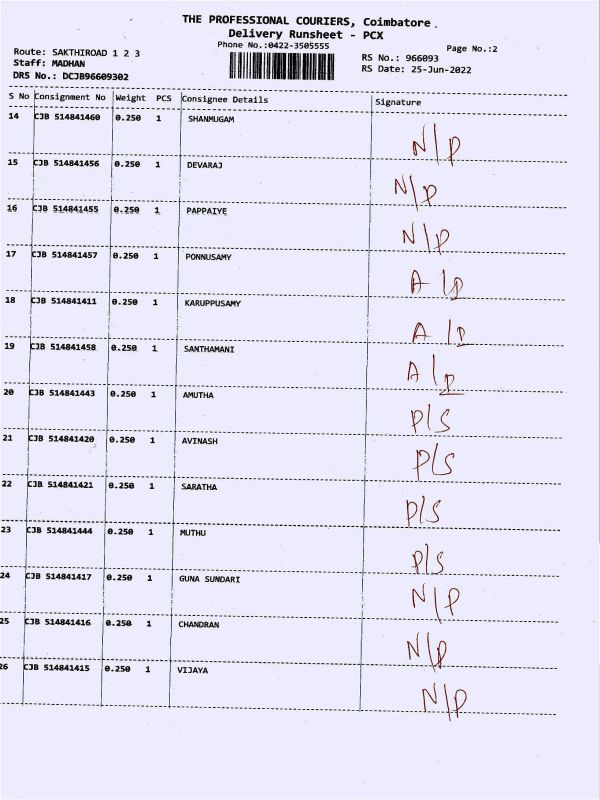 THE PROFESSIONAL COURIERS, Coimbatore.
Delivery Runsheet - PCX
Phone No.:0422-3505555
Page No.:2
Route: SAKTHIROAD 1 2 3
Staff: MADHAN
DRS No.: DCJB96609302
RS No.: 966093
RS Date: 25-Jun-2022
S No Consignment No Weight PCS Consignee Details Signature
14 CJB 514841460 0.250 1 SHANMUGAM N/P
15 CJB 514841456 0.250 1 DEVARAJ N/P
16 CJB 514841455 0.250 1 PAPPAIYE N/P
17 CJB 514841457 0.250 1 PONNUSAMY A/D
18 CJB 514841411 0.250 1 KARUPPUSAMY A/D
19 CJB 514841458 0.250 1 SANTHAMANI A/D
20 CJB 514841443 0.250 1 AMUTHA P/S
21 CJB 514841420 0.250 1 AVINASH P/S
22 CJB 514841421 0.250 1 SARATHA P/S
23 CJB 514841444 0.250 1 MUTHU P/S
24 CJB 514841417 0.250 1 GUNA SUNDARI N/P
25 CJB 514841416 0.250 1 CHANDRAN N/P
26 CJB 514841415 0.250 1 VIJAYA N/P